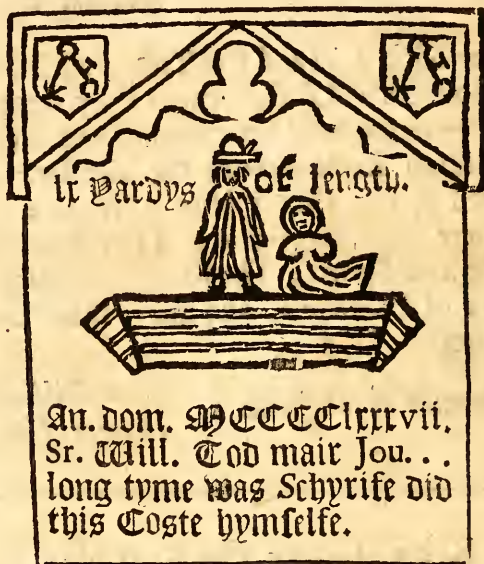 lx Yardys of length.
An. dom. MCCCClxxxvii.
Sr. Will. Tod mair Jou...
long tyme was Schyrife did
this Coste hymselfe.